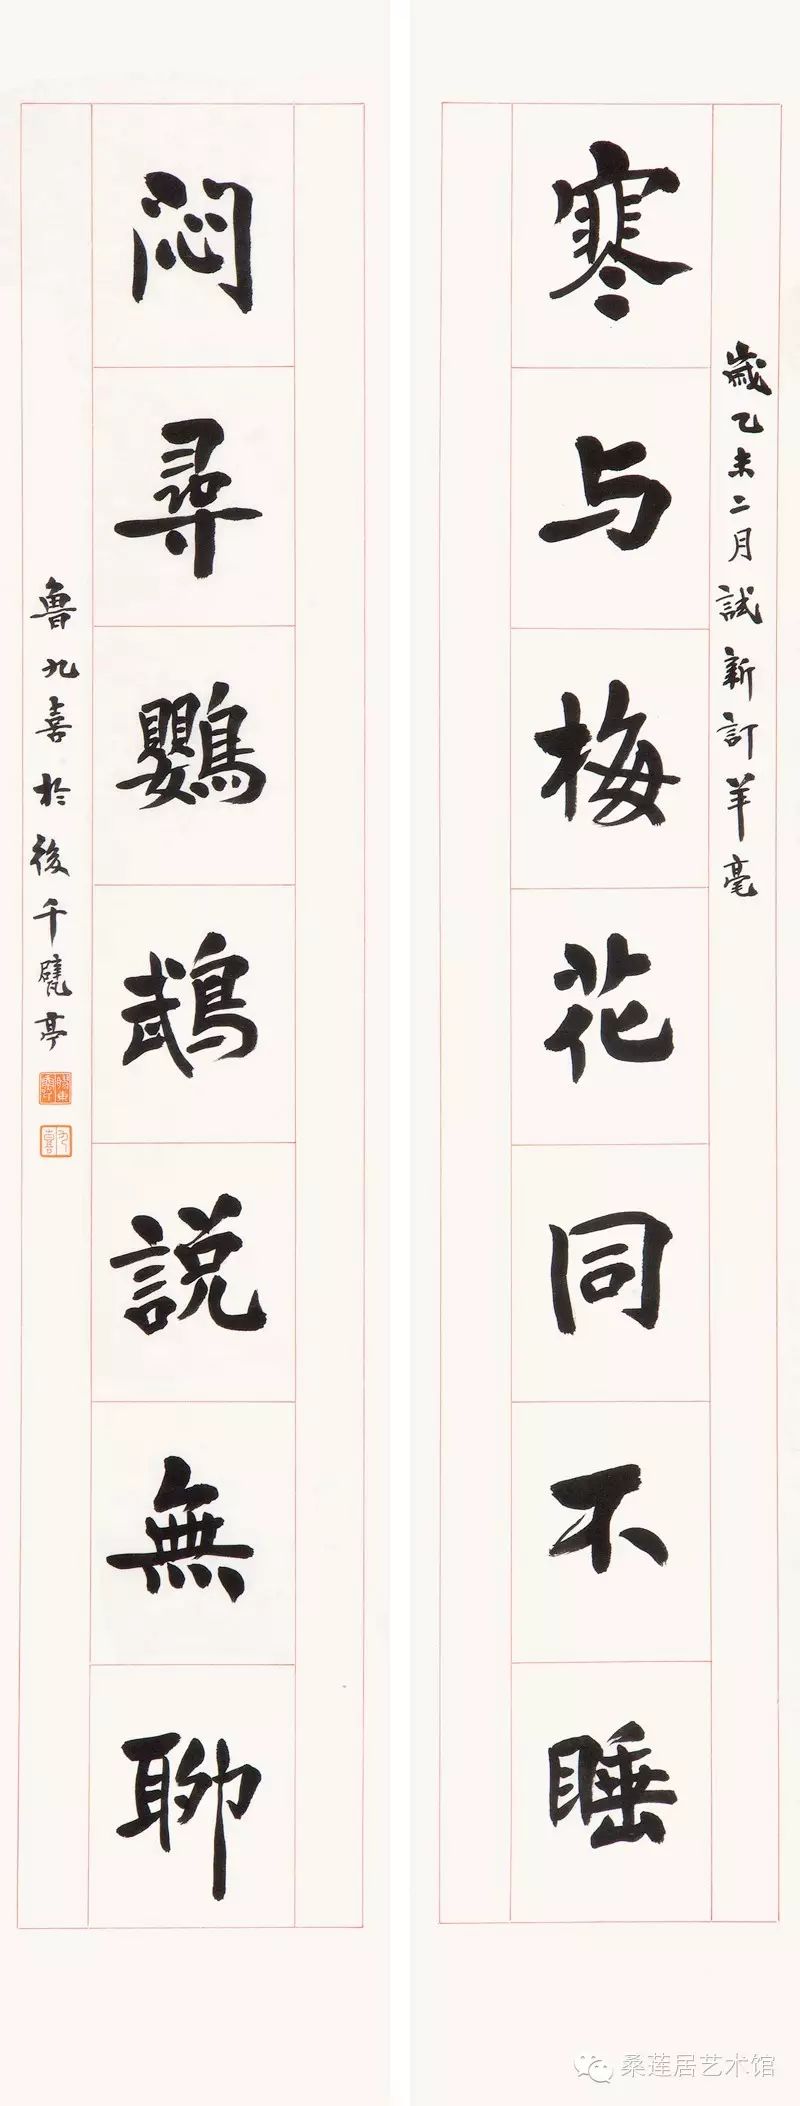 歲乙未二月試新訂羊毫
寒与梅花同不睡
悶尋鸚鵡説無聊
魯九喜於後千甓亭
九喜
桑莲居艺术馆